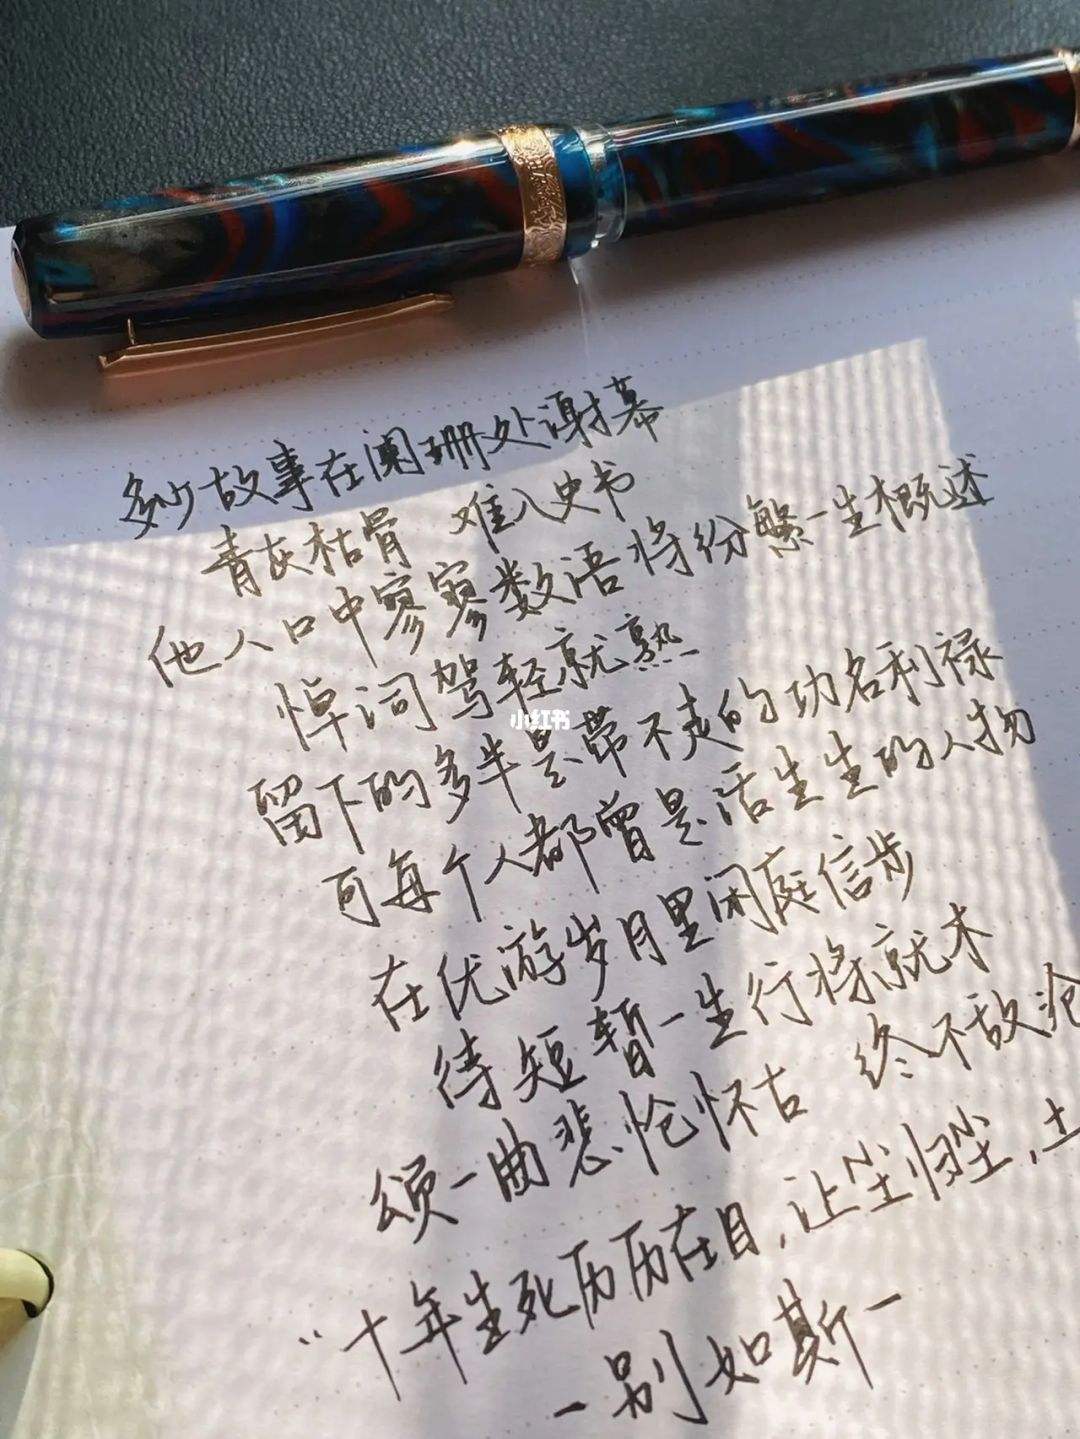 多少故事在阑珊处谢幕
青灰枯骨 难入史书
他人口中寥寥数语将份繁一生概述
悼词驾轻就熟
小红书
留下的多半是带不走的功名利禄
可每个人都曾是活生生的人物
在优游岁月里闲庭信步
待短暂一生行将就木
颂一曲悲怆怀古 终不敌沧
“十年生死历历在目,让尘归尘,土
-别如斯-